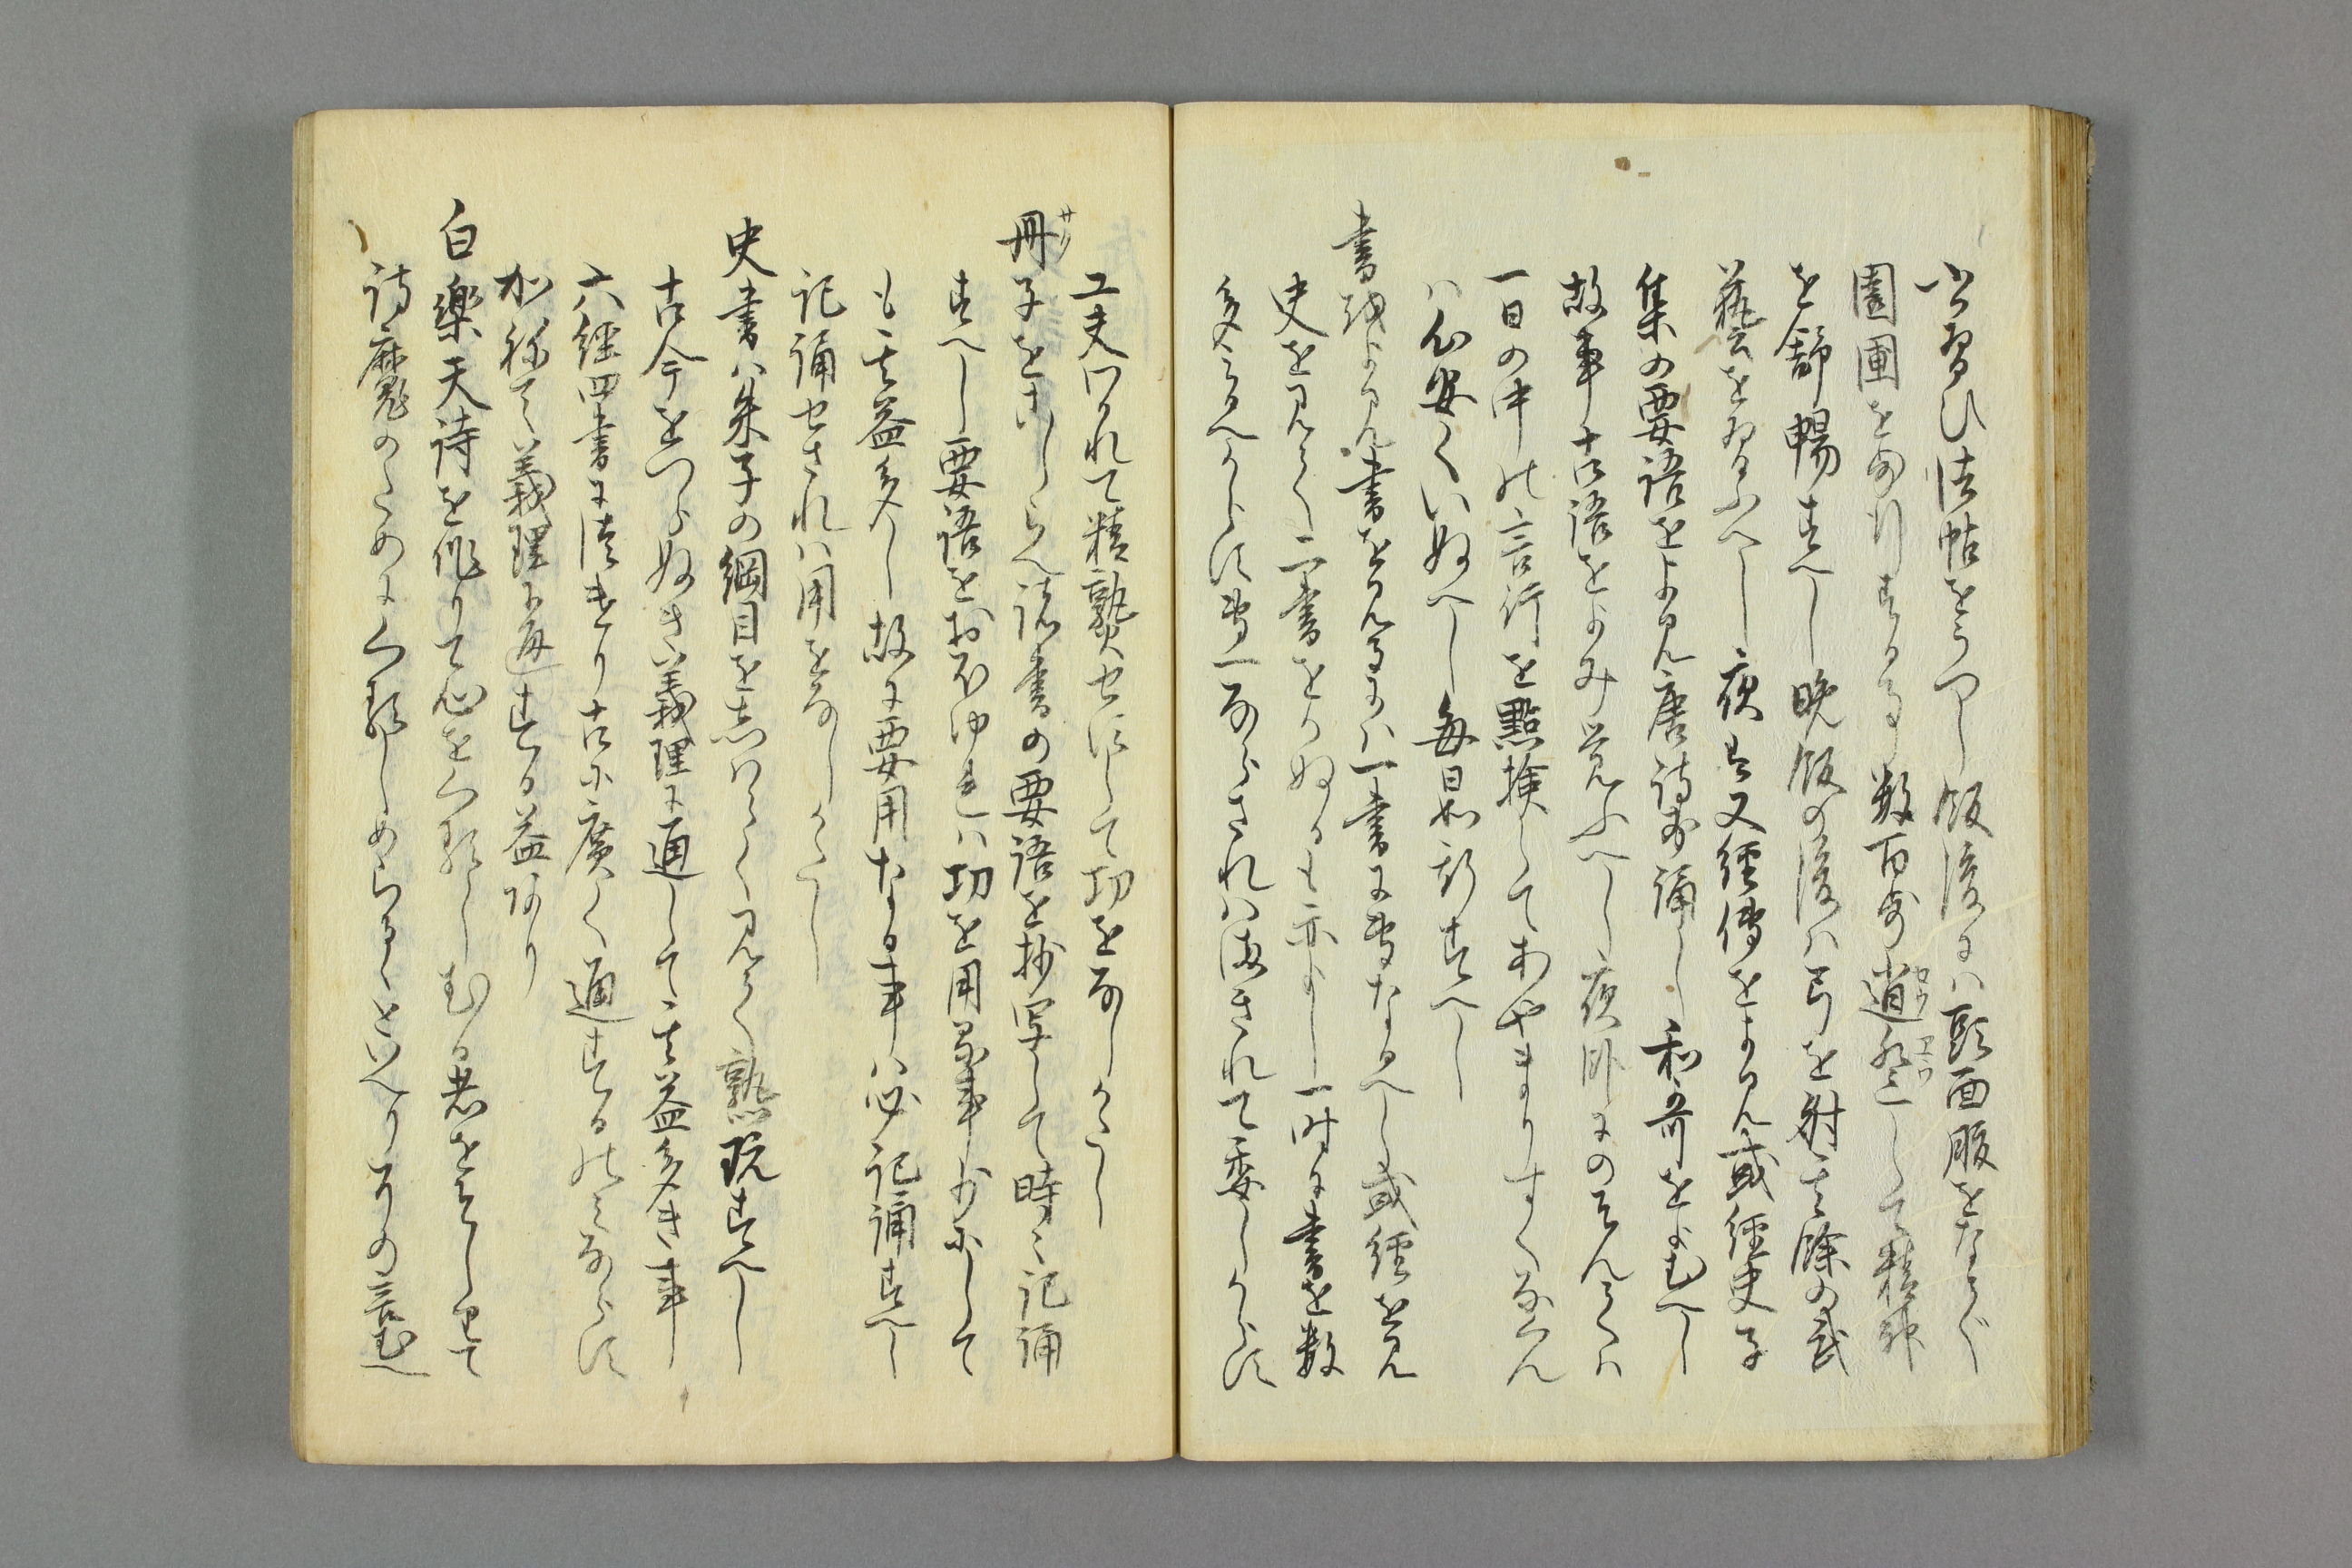 習ひ法帖をうつし飯後には頭面腹をなで
園圃を歩行する事数百歩逍遥して精神
を舒暢すへし晩飯の後は弓を射其餘の武
藝を習ふへし夜は又經傳をよみ見或經史子
集の要語をよみ見唐詩を誦し和哥をよむへし
故事古語をよみ覚ふへし夜臥にのそんては
一日の中の言行を點検してあやまりすくなくん
は心安くいぬへし毎日如斯すへし
書をよみ見書を見るには一書に専なるへし或經を見
史を見て二書をかぬるも亦よし一時に書を数
多見へからす専一ならされは海きれて委しからす
工夫わかれて精熟せすして功をなしかたし
冊子をこしらへ諸書の要語を抄写して時々記誦
すへし要語をおほゆれは功を用る事少にして
も其益多し故に要用なる事は必記誦すへし
記誦せされは用をなしかたし
史書は朱子の綱目を見て熟玩すへし
古今をつらぬき義理に通して其益多き事
六經四書に法れり古に廣く通するのみならす
加ねて義理に通する益あり
白樂天詩を作りて心をくるしむる者をそしりて
詩魔のために